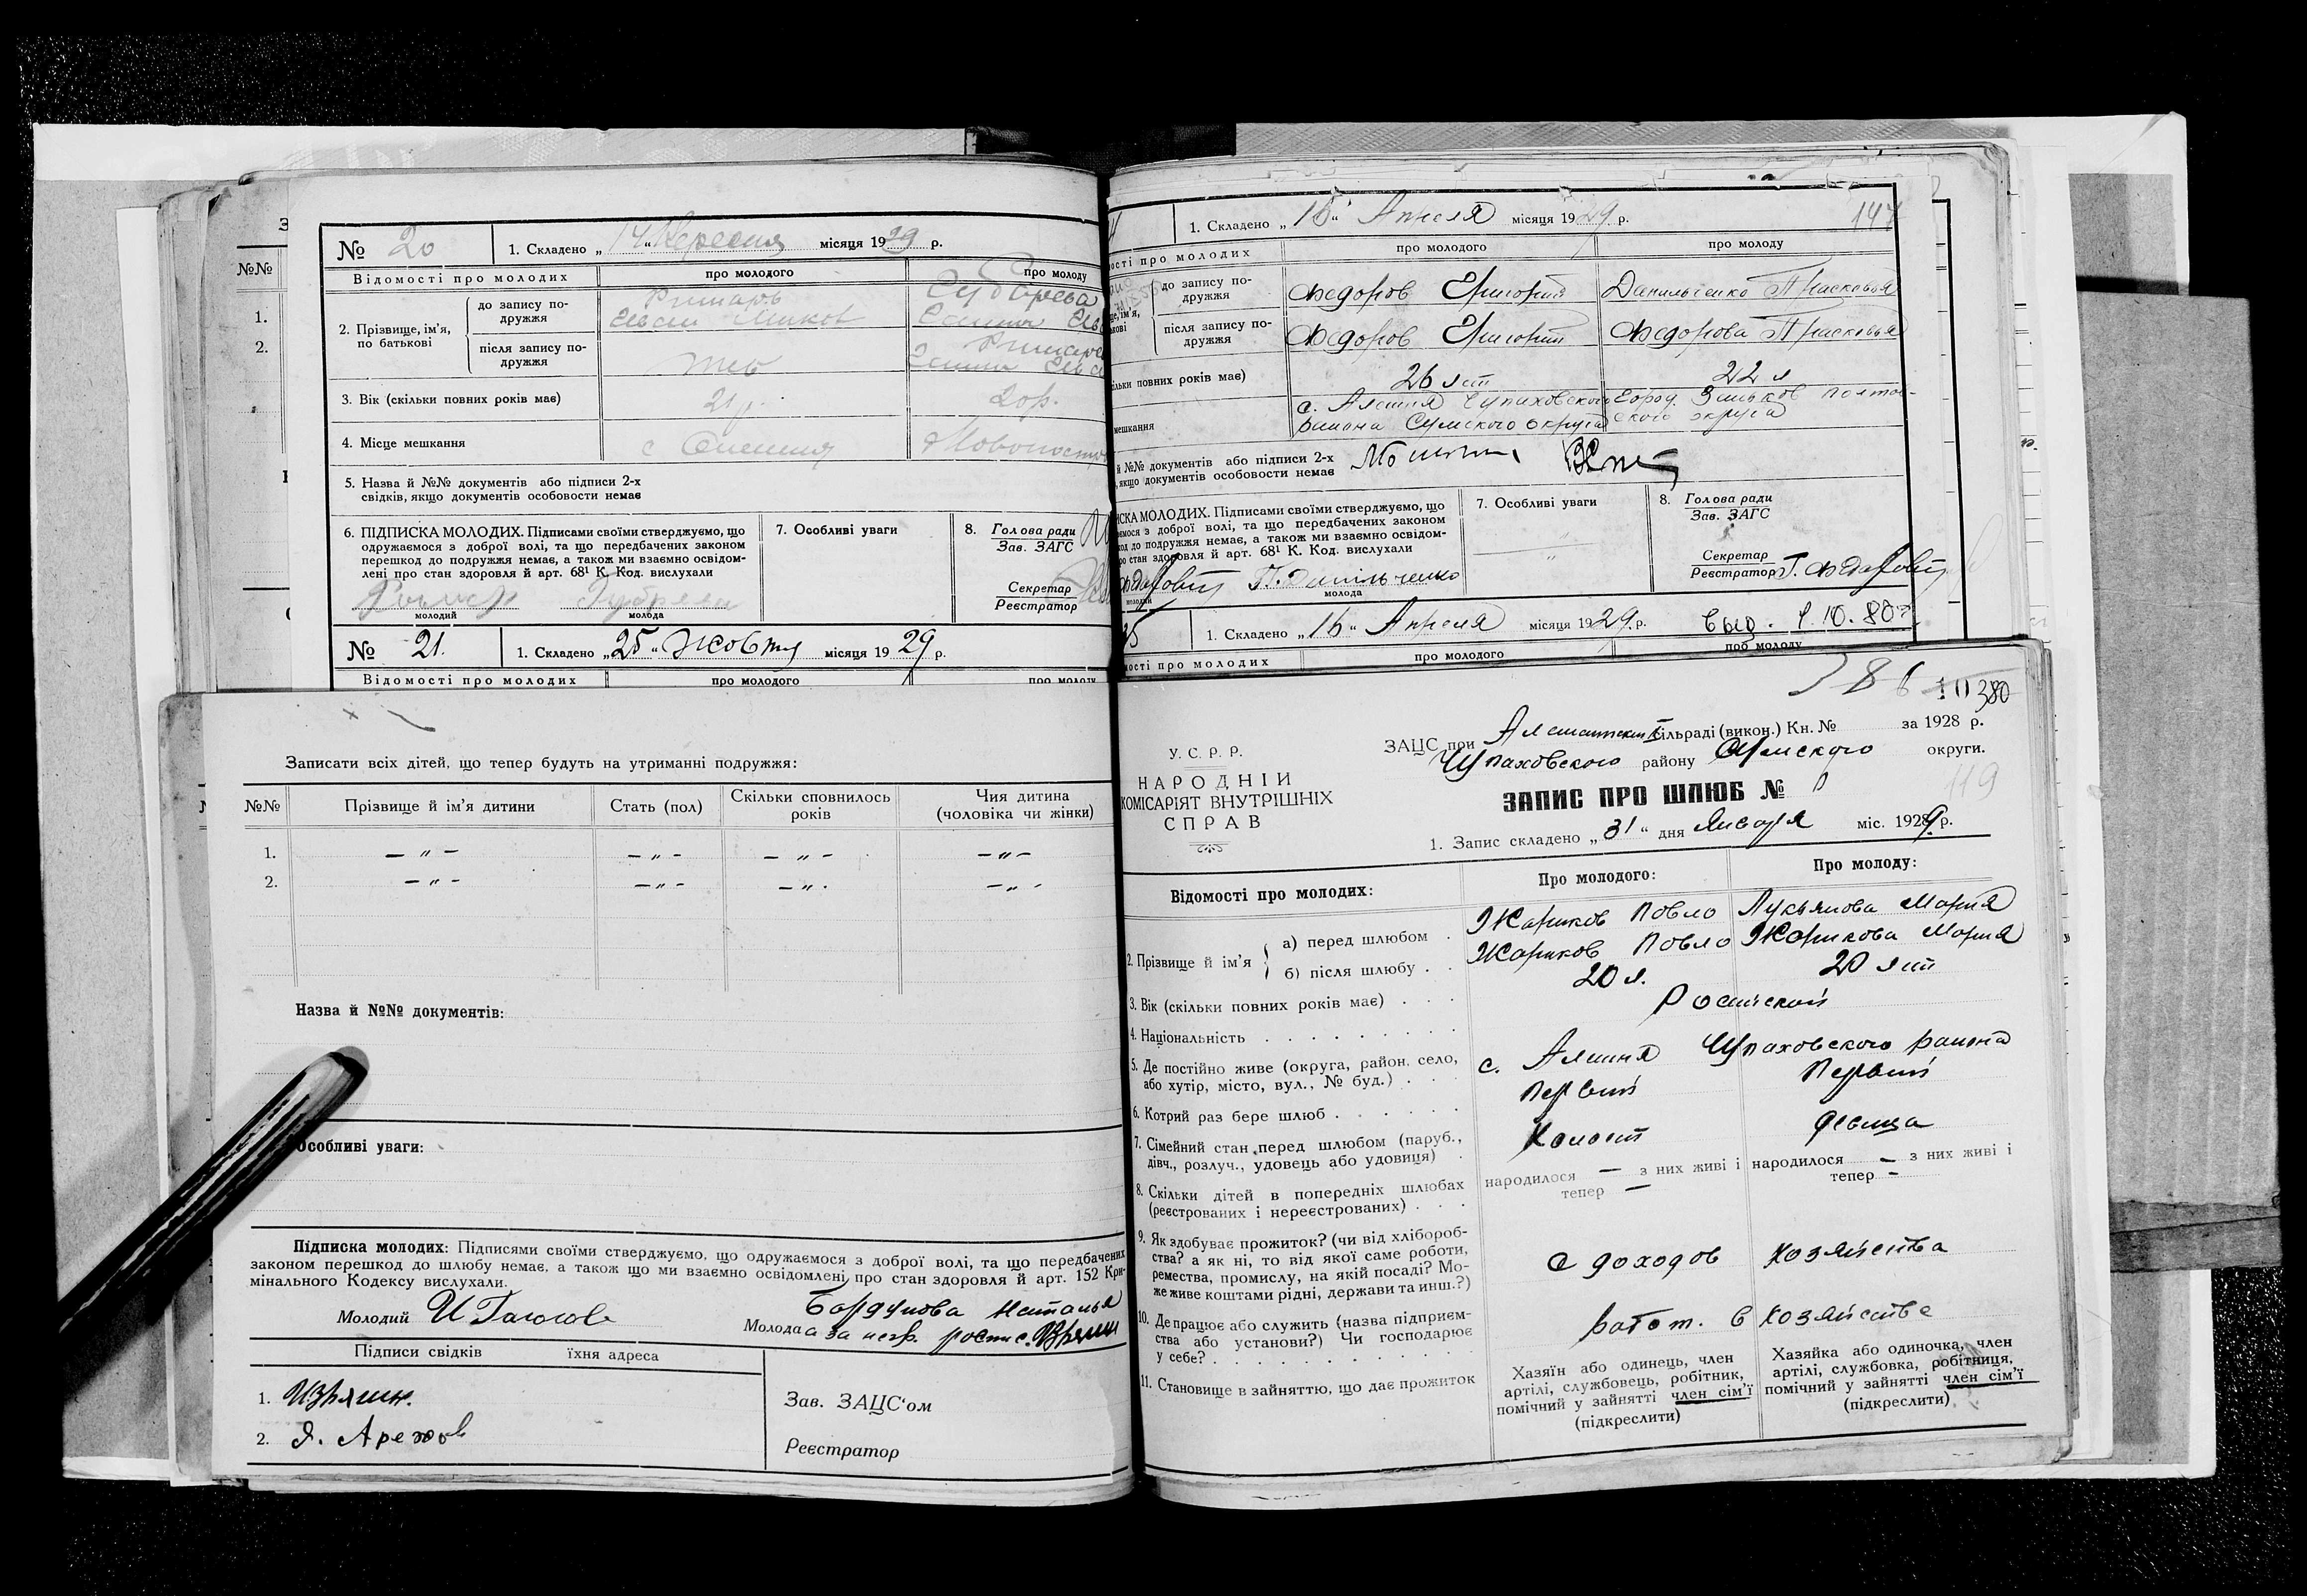 № 20
1. Складено „14“ Вересня місяця 1929 р.
Відомості про молодих
про молодого
про молоду
2. Прізвище, ім'я, по батькові
до запису подружжя
після запису подружжя
3. Вік (скільки повних років має)
21 р.
20 р.
4. Місце мешкання
5. Назва й №№ документів або підписи 2-х
свідків, якщо документів особовости немає
6. ПІДПИСКА МОЛОДИХ. Підписами своїми стверджуємо, що
одружаємося з доброї волі, та що передбачених законом
перешкод до подружжя немає, а також ми взаємно освідом-
лені про стан здоровля й арт. 68¹ К. Код. вислухали
молодий
молода
7. Особливі уваги
8. Голова ради
Зав. ЗАГС
Секретар
Реєстратор
№ 21.
1. Складено „25“ Жовтня місяця 1929 р.
Відомості про молодих
про молодого
про молоду
№№
1.
2.
Записати всіх дітей, що тепер будуть на утриманні подружжя:
№№
Прізвище й ім'я дитини
Стать (пол)
Скільки сповнилось
років
Чия дитина
(чоловіка чи жінки)
1. — „ — — „ — — „ — — „ —
2. — „ — — „ — — „ — — „ —
Назва й №№ документів:
Особливі уваги:
Підписка молодих: Підписями своїми стверджуємо, що одружаємося з доброї волі, та що передбачених
законом перешкод до шлюбу немає, а також що ми взаємно освідомлені про стан здоровля й арт. 152 Кри-
мінального Кодексу вислухали.
Молодий
Бордунова Наталья
Молода а за негр. роспис.
Підписи свідків
їхня адреса
1.
2.
Зав. ЗАЦС‘ом
Реєстратор
1. Складено „15“ Апреля місяця 1929 р.
147
ості про молодих
про молодого
про молоду
до запису по-
дружжя
Федоров Григорий
Данильченко Прасковья
після запису по-
дружжя
Федоров Григорий
Федорова Прасковья
ільки повних років має)
26 лет
22 л
мешкання
с. Алешня Чупаховского
района Сумского округа
город. Зиньков Полтав-
ского округа
й №№ документів або підписи 2-х
, якщо документів особовости немає
ИСКА МОЛОДИХ. Підписами своїми стверджуємо, що
ємося з доброї волі, та що передбачених законом
код до подружжя немає, а також ми взаємно освідом-
ро стан здоровля й арт. 68¹ К. Код. вислухали
П. Данильченко
молодий
молода
7. Особливі уваги
8. Голова ради
Зав. ЗАГС
Секретар
Реєстратор
1. Складено „16“ Апреля місяця 1929 р.
ості про молодих
про молодого
про молоду
386
380
У. С. Р. Р.
НАРОДНІЙ
КОМІСАРІЯТ ВНУТРІШНІХ
СПРАВ
ЗАЦС при Алешанской сільраді (викон.) Кн. № за 1928 р.
Чупаховского району Сумского округи.
119
ЗАПИС ПРО ШЛЮБ №
1. Запис складено „31“ дня Января міс. 1929 р.
Відомості про молодих:
Про молодого:
Про молоду:
2. Прізвище й ім'я
а) перед шлюбом .
Жариков Повло
Лукьянова Мария
б) після шлюбу . .
Жариков Повло
Жарикова Мария
3. Вік (скільки повних років має) . . .
20 л.
20 лет
4. Національність . . . . . . . . .
Российской
5. Де постійно живе (округа, район, село,
або хутір, місто, вул., № буд.) . . .
с. Алешня Чупаховского района
6. Котрий раз бере шлюб . . . . . .
Первый
Первый
7. Сімейний стан перед шлюбом (паруб.,
дівч., розлуч., удовець або удовиця) .
Холост
девица
8. Скільки дітей в попередніх шлюбах
(реєстрованих і нереєстрованих) . . .
народилося — з них живі і
тепер —
народилося — з них живі і
тепер —
9. Як здобуває прожиток? (чи від хлібороб-
ства? а як ні, то від якої саме роботи,
ремества, промислу, на якій посаді? Мо-
же живе коштами рідні, держави та инш.?)
С доходов хозяйства
10. Де працює або служить (назва підприєм-
ства або установи?) Чи господарює
у себе? . . . . . . . . . . . . .
работ. в хозяйстве
11. Становище в зайняттю, що дає прожиток
Хазяїн або одинець, член
артілі, службовець, робітник,
помічний у зайнятті член сім'ї
(підкреслити)
Хазяйка або одиночка, член
артілі, службовка, робітниця,
помічний у зайнятті член сім'ї
(підкреслити)